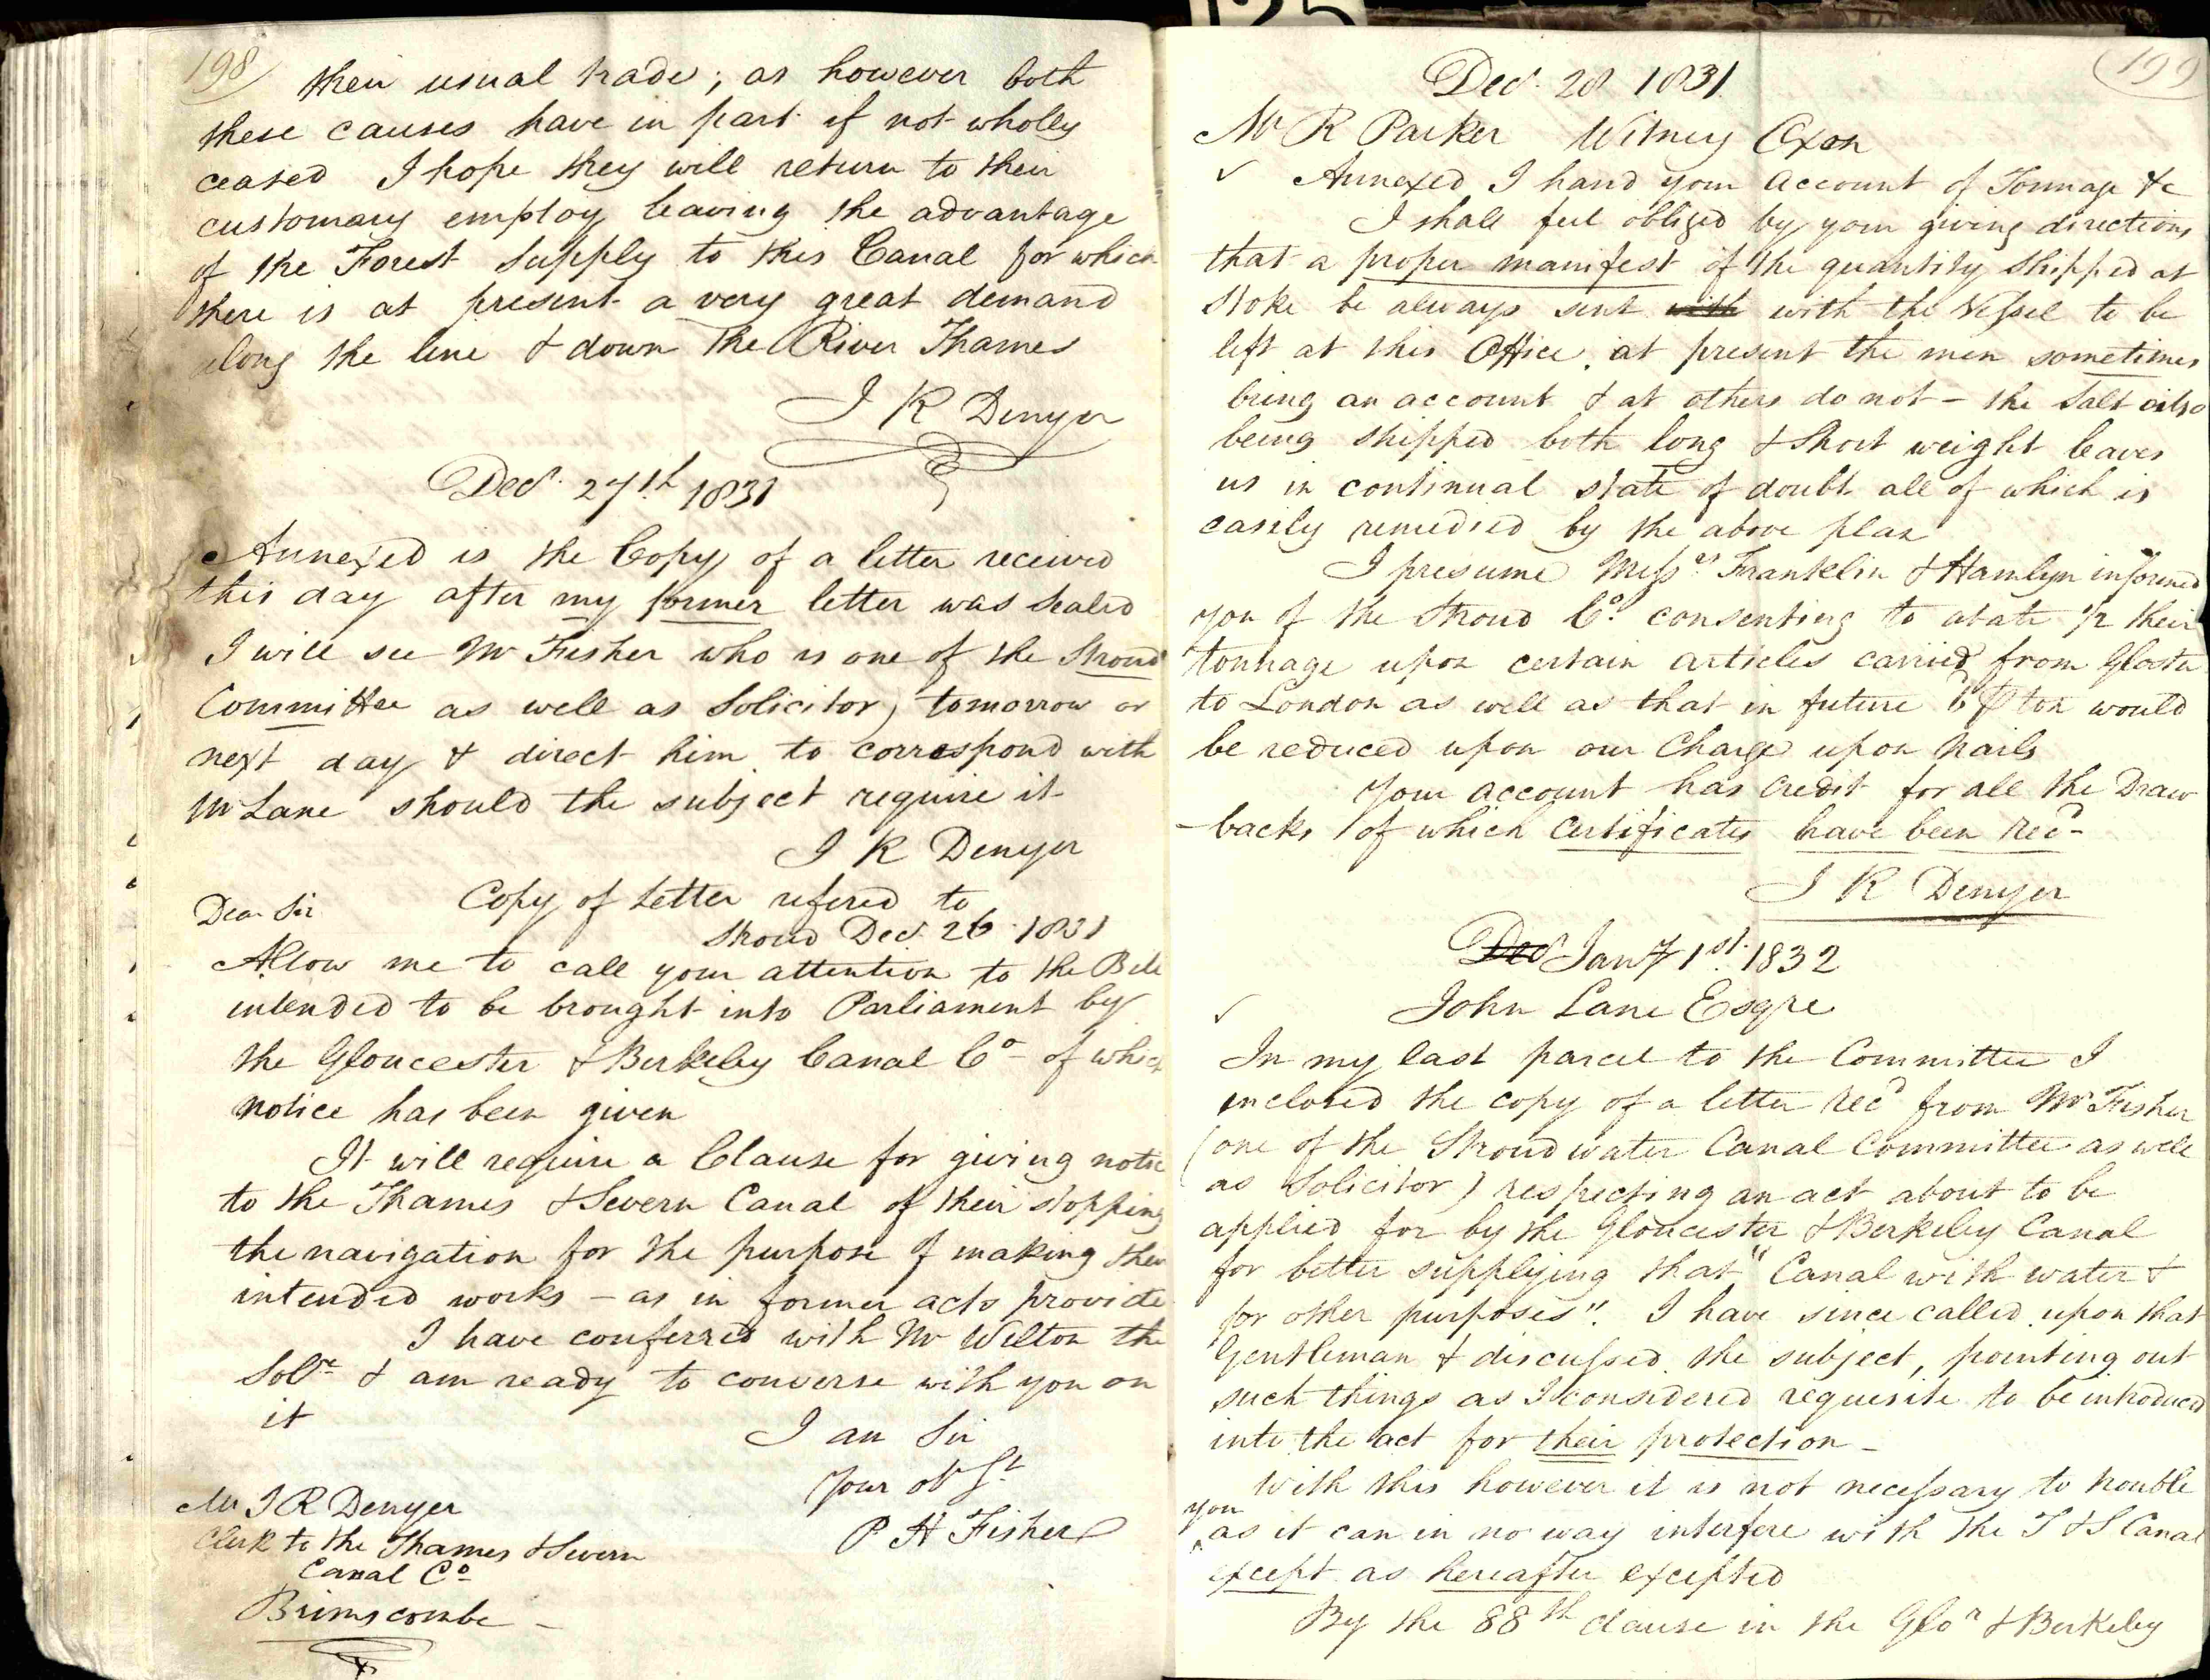 198
their usual trade; as however both
these causes have in part if not wholly
ceased I hope they will return to their
customary employ leaving the advantage
of the Forest supply to this Canal for which
there is at present a very great demand
along the line & down the River Thames
I K Denyer
Decr. 27th 1831
Annexed is the Copy of a letter received
this day after my former letter was sealed
I will see Mr Fisher who is one of the Stroud
Committee as well as Solicitor) tomorrow or
next day & direct him to correspond with
Mr Lane should the subject require it
I K Denyer
Copy of Letter refered to
Dear Sir
Stroud Decr. 26 1831
Allow me to call your attention to the Bill
intended to be brought into Parliament by
the Gloucester & Berkeley Canal Co - of which
notice has been given
It will require a Clause for giving notice
to the Thames & Severn Canal of their stopping
the navigation for the purpose of making their
intended works - as in former acts provide
I have conferred with Mr Wilton the
Solr & am ready to converse with you on
it
I am Sir
Your obt St
P H Fisher
Mr I R Denyer
Clerk to the Thames & Severn
Canal Co
Brimscombe -
125
199
Decr. 28 1831
Mr R Parker Witney Oxon
✓ Annexed I hand your Account of Tonnage &c
I shall feel obliged by your giving directions
that a proper manifest of the quantity shipped at
Stoke be always sent with with the Vessel to be
left at this Office, at present the men sometimes
bring an account & at others do not - the Salt also
being shipped both long & short weight leaves
us in continual state of doubt all of which is
easily remedied by the above plan
I presume Messrs Franklin & Hamlyn informed
you of the Stroud Co. consenting to abate 1/2 their
tonnage upon certain articles carried from Gloster
to London as well as that in future 6d ⅌ ton would
be reduced upon our Charge upon Nails
Your account has credit for all the Draw
-backs of which Certificates have been recd -
I K Denyer
Decr Jany 1st. 1832
✓ John Lane Esqre
In my last parcel to the Committee I
enclosed the copy of a letter recd from Mr Fisher
(one of the Stroudwater Canal Committee as well
as Solicitor) respecting an act about to be
applied for by the Gloucester & Berkeley Canal
for better supplying that "Canal with water &
for other purposes". I have since called upon that
Gentleman & discussed the subject, pointing out
such things as I considered requisite to be introduced
into the act for their protection -
With this however it is not necessary to trouble
you
as it can in no way interfere with the T & S Canal
except as hereafter excepted
By the 88th clause in the Glor & Berkeley